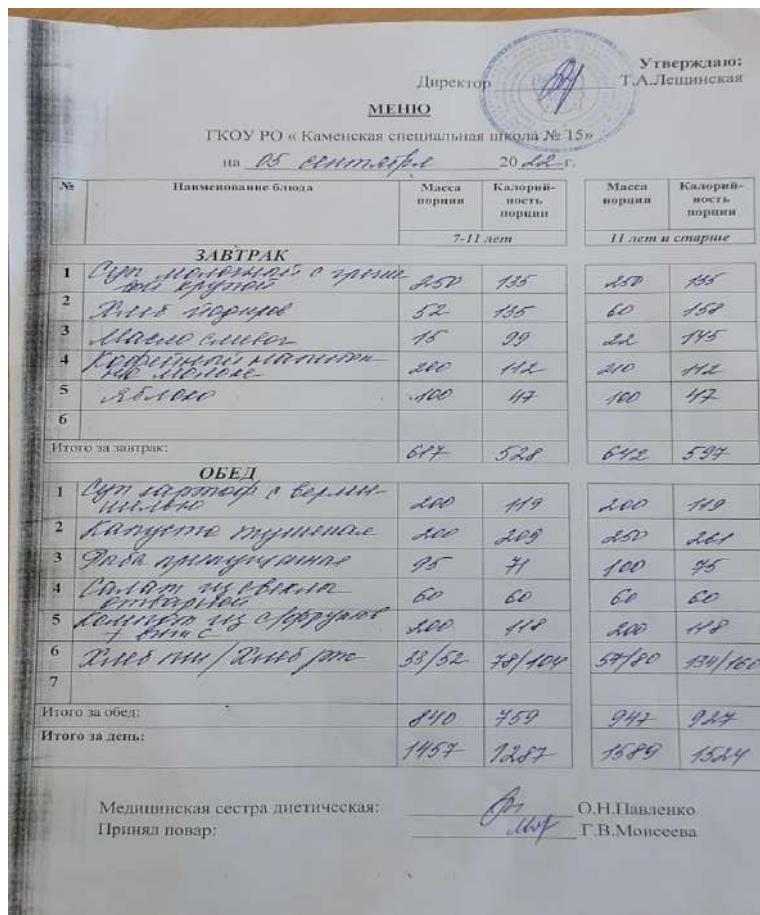 Утверждаю:
Директор Т.А.Лещинская
МЕНЮ
ГКОУ РО « Каменская специальная школа № 15»
на 05 сентября 2022 г.
№ Наименование блюда Масса порции Калорий-ность порции Масса порции Калорий-ность порции
7-11 лет 11 лет и старше
ЗАВТРАК
1 Суп молочный с гречне
вой крупой 250 135 250 135
2 Хлеб йодиров 52 135 60 158
3 Масло сливоч 15 99 22 145
4 Кофейный напиток
на молоке 200 112 210 112
5 Яблоко 100 47 100 47
6
Итого за завтрак: 617 528 642 597
ОБЕД
1 Суп картоф с верми-
шелью 200 119 200 119
2 Капуста тушеная 200 209 250 261
3 припущенная 95 71 100 75
4 Салат из свеклы
отварной 60 60 60 60
5 Компот из с/фруктов
+ вит с 200 118 200 118
6 Хлеб пш/Хлеб рж 33/52 78/104 57/80 134/160
7
Итого за обед: 840 759 947 927
Итого за день: 1457 1287 1589 1524
Медицинская сестра диетическая: О.Н.Павленко
Принял повар: Г.В.Моисеева